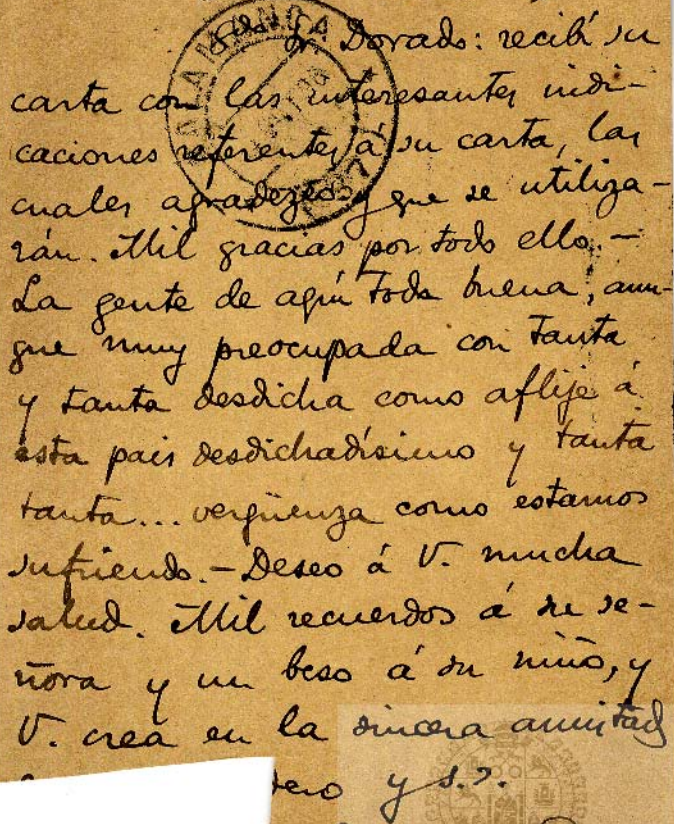 Sr Dorado: recibí su
carta con las interesantes indi-
caciones referentes á su carta, las
cuales agradezco y que se utiliza-
rán. Mil gracias por todo ello.—
La gente de aquí toda buena, aun-
que muy preocupada con tanta
y tanta desdicha como aflije á
esta pais desdichadísimo y tanta
tanta... vergüenza como estamos
sufriendo.—Deseo á V. mucha
salud. Mil recuerdos á su se-
ñora y un beso á su niño, y
V. crea en la sincera amistad
y s.s.
SALAMANCA